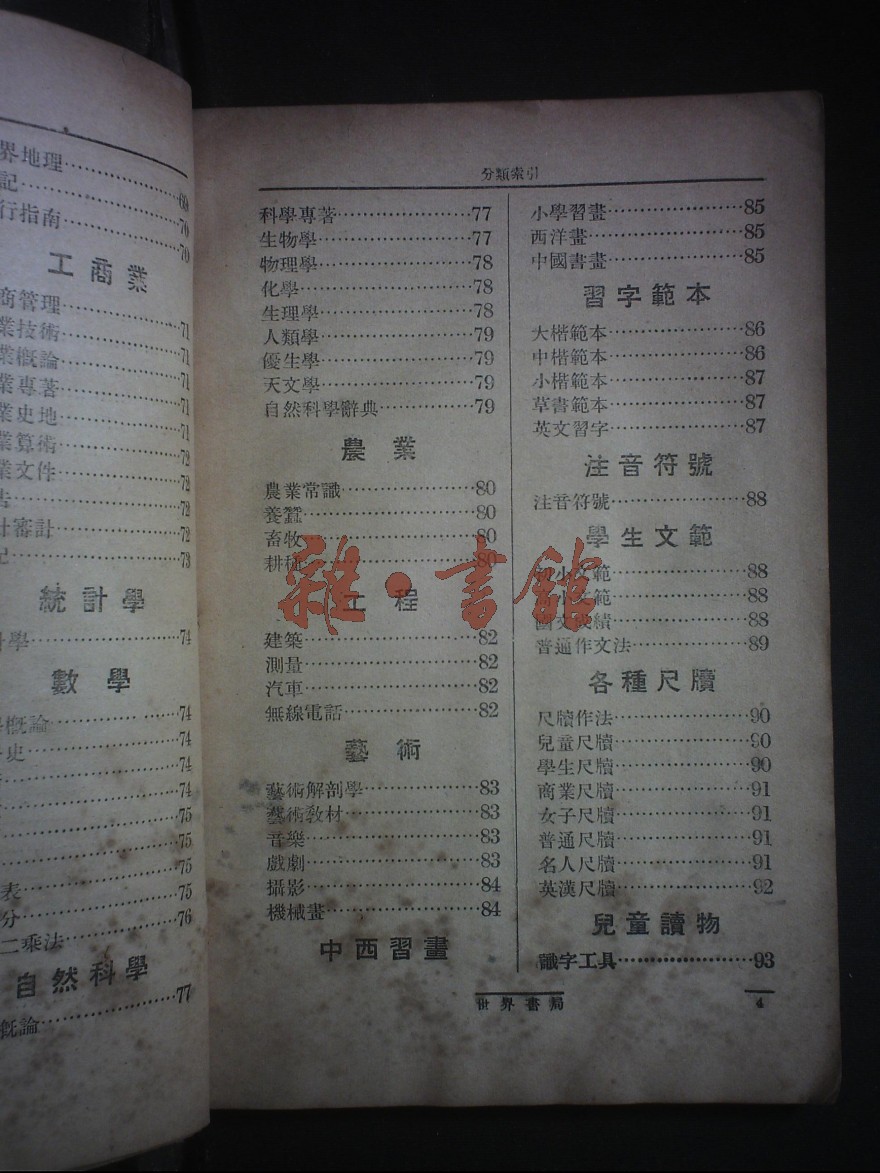 界地理……69
記……70
行指南……70
工商業
商管理……71
業技術……71
業概論……71
業專著……71
業史地……71
業算術……72
業文件……72
告……72
計審計……72
記……73
統計學
計學……74
數學
學概論……74
史……74
……74
……74
……75
……75
……75
表……75
分……76
二乘法
自然科學
概論……77
分類索引
科學專著……77
生物學……77
物理學……78
化學……78
生理學……78
人類學……79
優生學……79
天文學……79
自然科學辭典……79
農業
農業常識……80
養蠶……80
畜牧……80
耕種……80
工程
建築……82
測量……82
汽車……82
無線電話……82
藝術
藝術解剖學……83
藝術教材……83
音樂……83
戲劇……83
攝影……84
機械畫……84
中西習畫
小學習畫……85
西洋畫……85
中國書畫……85
習字範本
大楷範本……86
中楷範本……86
小楷範本……87
草書範本……87
英文習字……87
注音符號
注音符號……88
學生文範
小文範……88
小文範……88
國文成績……88
普通作文法……89
各種尺牘
尺牘作法……90
兒童尺牘……90
學生尺牘……90
商業尺牘……91
女子尺牘……91
普通尺牘……91
名人尺牘……91
英漢尺牘……92
兒童讀物
識字工具……93
世界書局
4
雜·書館